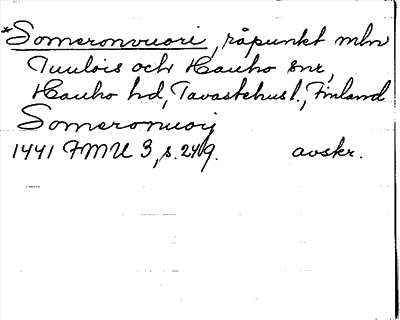 *Someronvuori, råpunkt mln
Tuulois och Hauho snr,
Hauho hd, Tavastehus l., Finland
Someronuoij
1441 FMU 3, s. 249. avskr.